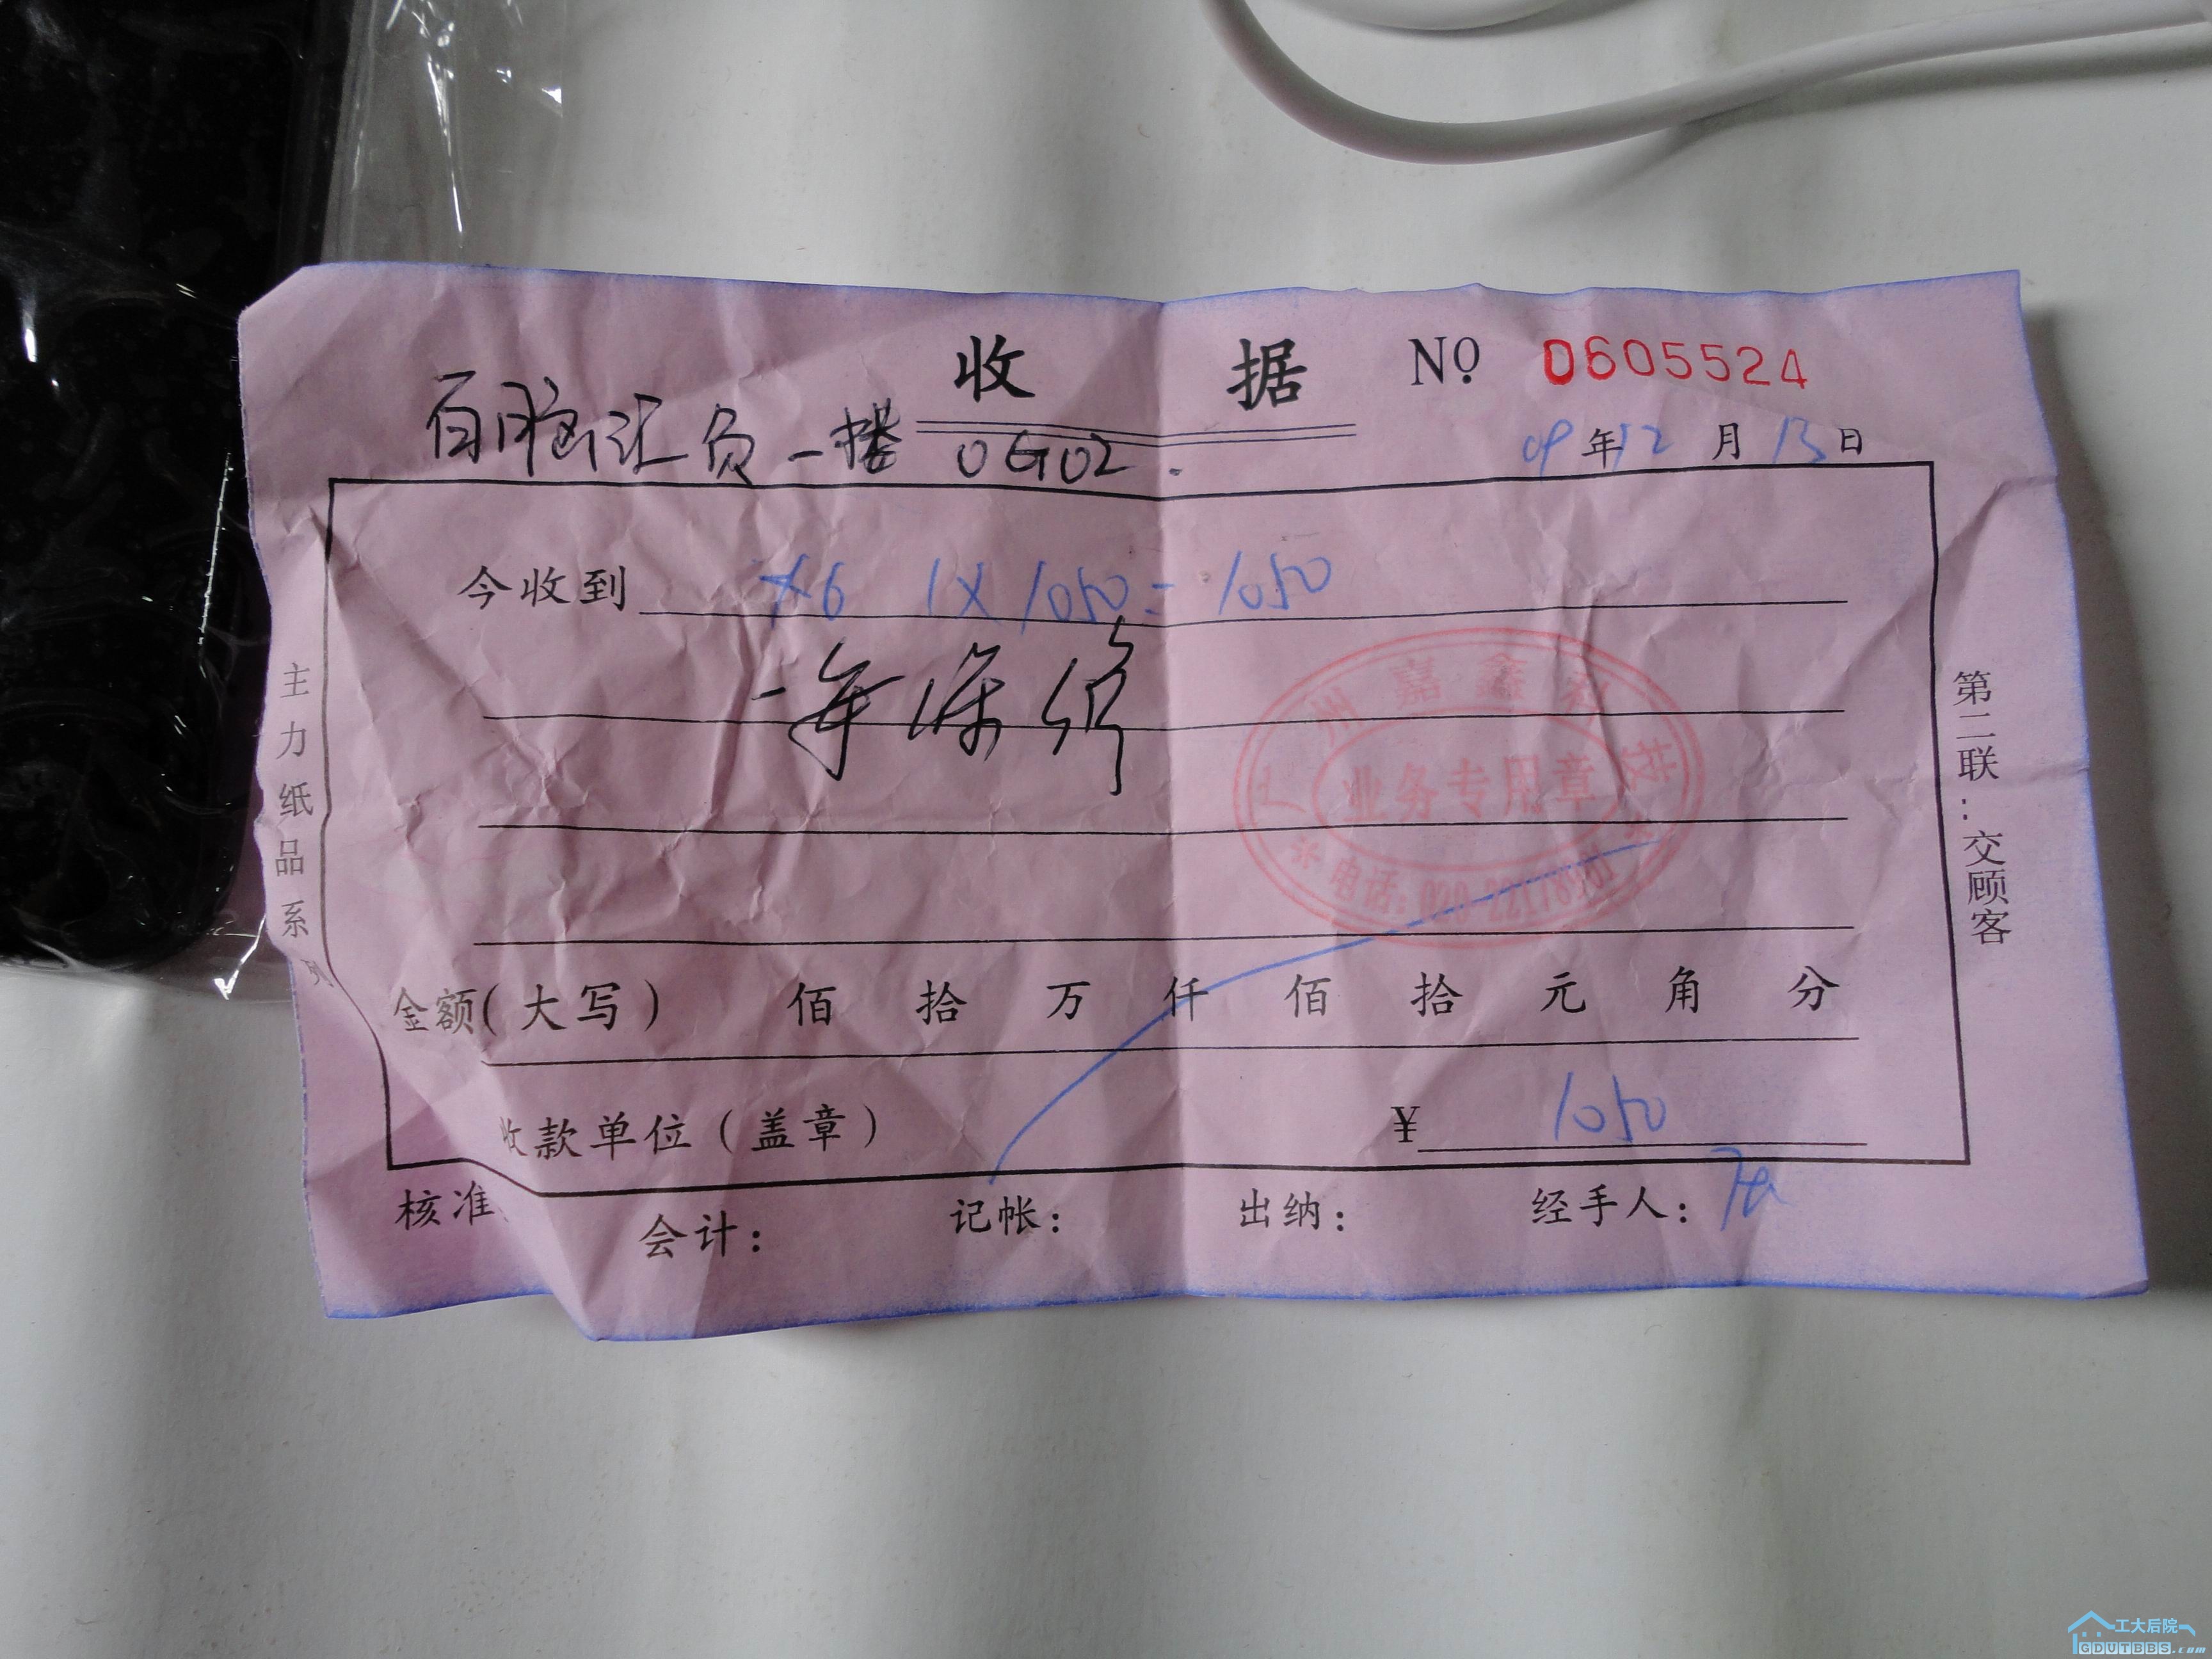 收 据 No 0605524
百脑汇负一楼 0G02.
09年12月13日
今收到 X6 1X1050=1050
一年保修
广州嘉鑫科技
业务专用章
电话:020-
金额(大写) 佰 拾 万 仟 佰 拾 元 角 分
收款单位(盖章) ¥ 1050
核准 会计: 记帐: 出纳: 经手人:
主力纸品系列
第二联:交顾客
工大后院
GDUTBBS.com